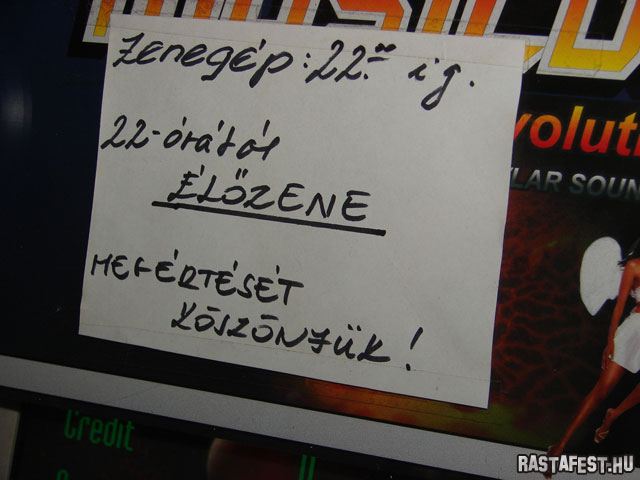 Zenegép: 22.⁰⁰ ig.
22-órától
ÉLŐZENE
MEGÉRTÉSÉT
KÖSZÖNJÜK!
Credit
RASTAFEST.HU